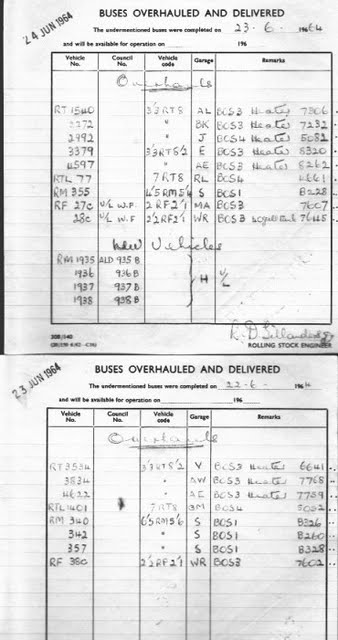 24 JUN 1964
BUSES OVERHAULED AND DELIVERED
The undermentioned buses were completed on 23 - 6 - 1964
and will be available for operation on 196
Vehicle No. Council No. Vehicle code Garage Remarks
Overhauls
RT 1540 3/3RT8 AL BOS3 Heater 7306
2272 " BK BOS3 Heater 7232
2992 " J BOS4 Heater 5082
3379 3/3RT8/2 E BOS3 Heater 8320
4597 " AE BOS3 Heater 8262
RTL 77 7RT8 RL BOS4 4661
RM 355 4/5RM5/4 S BOS1 8228
RF 27c U/L W.F 2RF2/1 MA BOS3 7607
28c U/L W.F 2/2RF2/1 WR BOS3 76445
New Vehicles
RM 1935 ALD 935 B
1936 936 B
1937 937 B H U/L
1938 938 B
ROLLING STOCK ENGINEER
23 JUN 1964
BUSES OVERHAULED AND DELIVERED
The undermentioned buses were completed on 22 - 6 - 1964
and will be available for operation on 196
Vehicle No. Council No. Vehicle code Garage Remarks
Overhauls
RT 3534 3/3RT8/2 V BOS3 Heater 6641
3834 " AW BOS3 Heater 7768
4622 " AE BOS3 Heater 7759
RTL 1401 7RT8 BM BOS4 5052
RM 340 6/5RM5/6 S BOS1 8326
342 " S BOS1 8260
357 " S BOS1 8328
RF 38c 2/2RF2/1 WR BOS3 7602